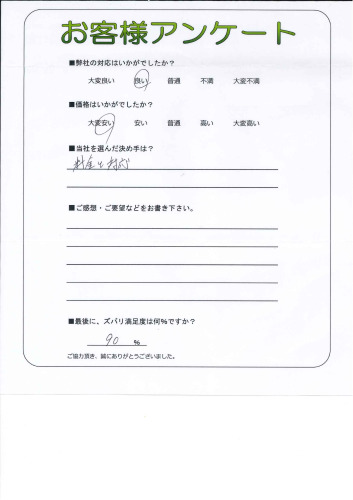 お客様アンケート
■弊社の対応はいかがでしたか？
大変良い 良い 普通 不満 大変不満
■価格はいかがでしたか？
大変安い 安い 普通 高い 大変高い
■当社を選んだ決め手は？
料金と対応
■ご感想・ご要望などをお書き下さい。
■最後に、ズバリ満足度は何%ですか？
90 %
ご協力頂き、誠にありがとうございました。